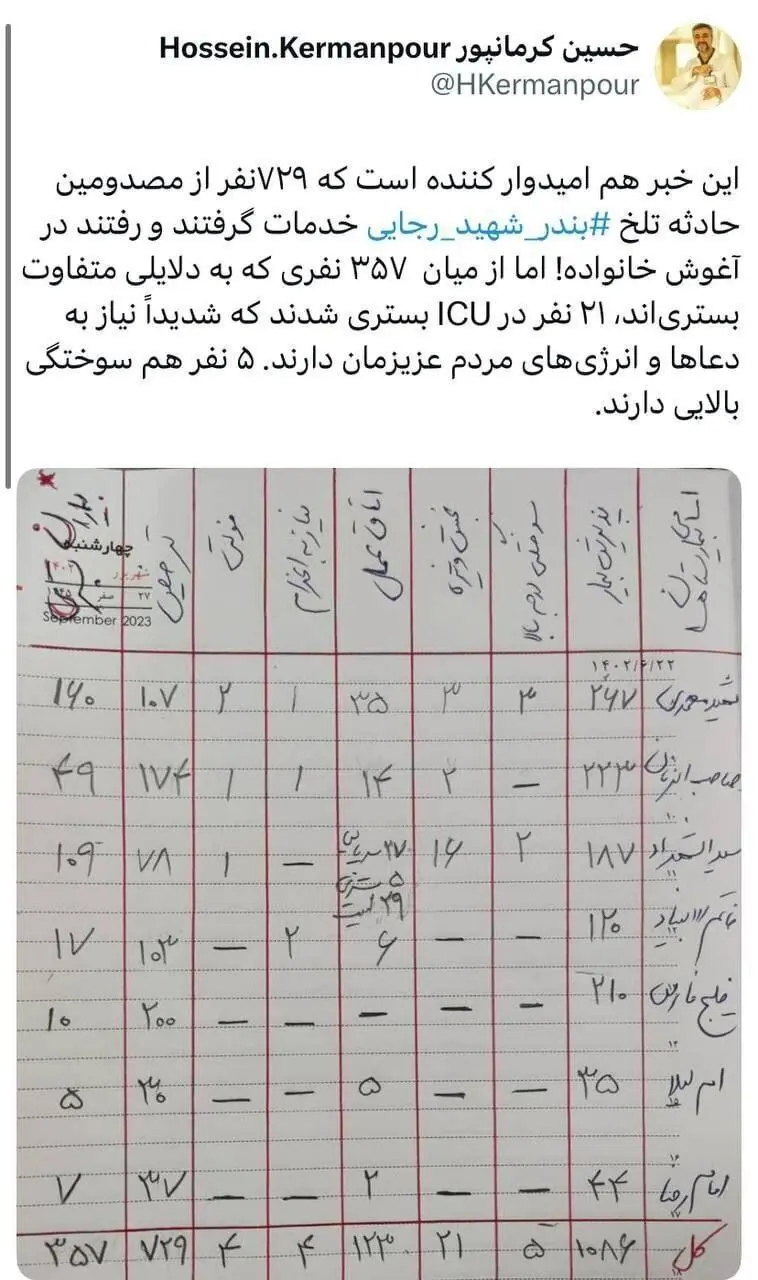 حسین کرمانپور Hossein.Kermanpour
@HKermanpour
این خبر هم امیدوار کننده است که ۷۲۹نفر از مصدومین
حادثه تلخ #بندر_شهید_رجایی خدمات گرفتند و رفتند در
آغوش خانواده! اما از میان ۳۵۷ نفری که به دلایلی متفاوت
بستری‌اند، ۲۱ نفر در ICU بستری شدند که شدیداً نیاز به
دعاها و انرژی‌های مردم عزیزمان دارند. ۵ نفر هم سوختگی
بالایی دارند.
اسامی بیمارستان ها پذیرش بیمار سوختگی درجه بالا بخش ویژه اتاق عمل نیاز به اعزام فوتی ترخیص بیماران بستری
چهارشنبه
شهریور ۱۴۰۲
۲۷ صفر ۱۴۴۵
September 2023
۱۴۰۲/۶/۲۲
شهید محمدی ۲۶۷ ۳ ۳ ۳۵ ۱ ۲ ۱۰۷ ۱۶۰
صاحب الزمان ۲۲۳ — ۲ ۱۴ ۱ ۱ ۱۷۴ ۴۹
سید الشهداء ۱۸۷ ۲ ۱۶ ۲۷ سرپایی ۵ بستری ۲۹ — ۱ ۷۸ ۱۰۹
خاتم الانبیاء ۱۲۰ — — ۶ ۲ — ۱۰۳ ۱۷
خلیج فارس ۲۱۰ — — — — — ۲۰۰ ۱۰
ام لیلا ۳۵ — — ۵ — — ۳۰ ۵
امام رضا ۴۴ — — ۲ — — ۳۷ ۷
کل ۱۰۸۶ ۵ ۲۱ ۱۲۳ ۴ ۴ ۷۲۹ ۳۵۷